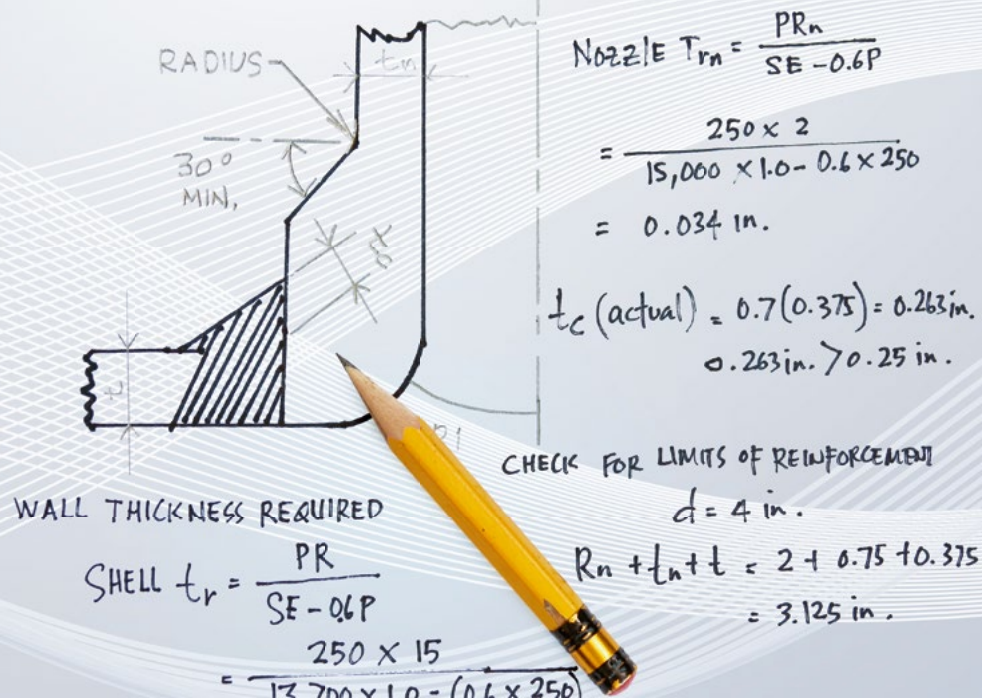 RADIUS
tn
30°
MIN.
t
WALL THICKNESS REQUIRED
SHELL tr = PR / SE - 0.6P
= 250 × 15 / 13,700 × 1.0 - (0.6 × 250)
Nozzle Trn = PRn / SE - 0.6P
= 250 × 2 / 15,000 × 1.0 - 0.6 × 250
= 0.034 in.
tc (actual) = 0.7(0.375) = 0.263 in.
0.263 in. > 0.25 in.
CHECK FOR LIMITS OF REINFORCEMENT
d = 4 in.
Rn + tn + t = 2 + 0.75 + 0.375
= 3.125 in.